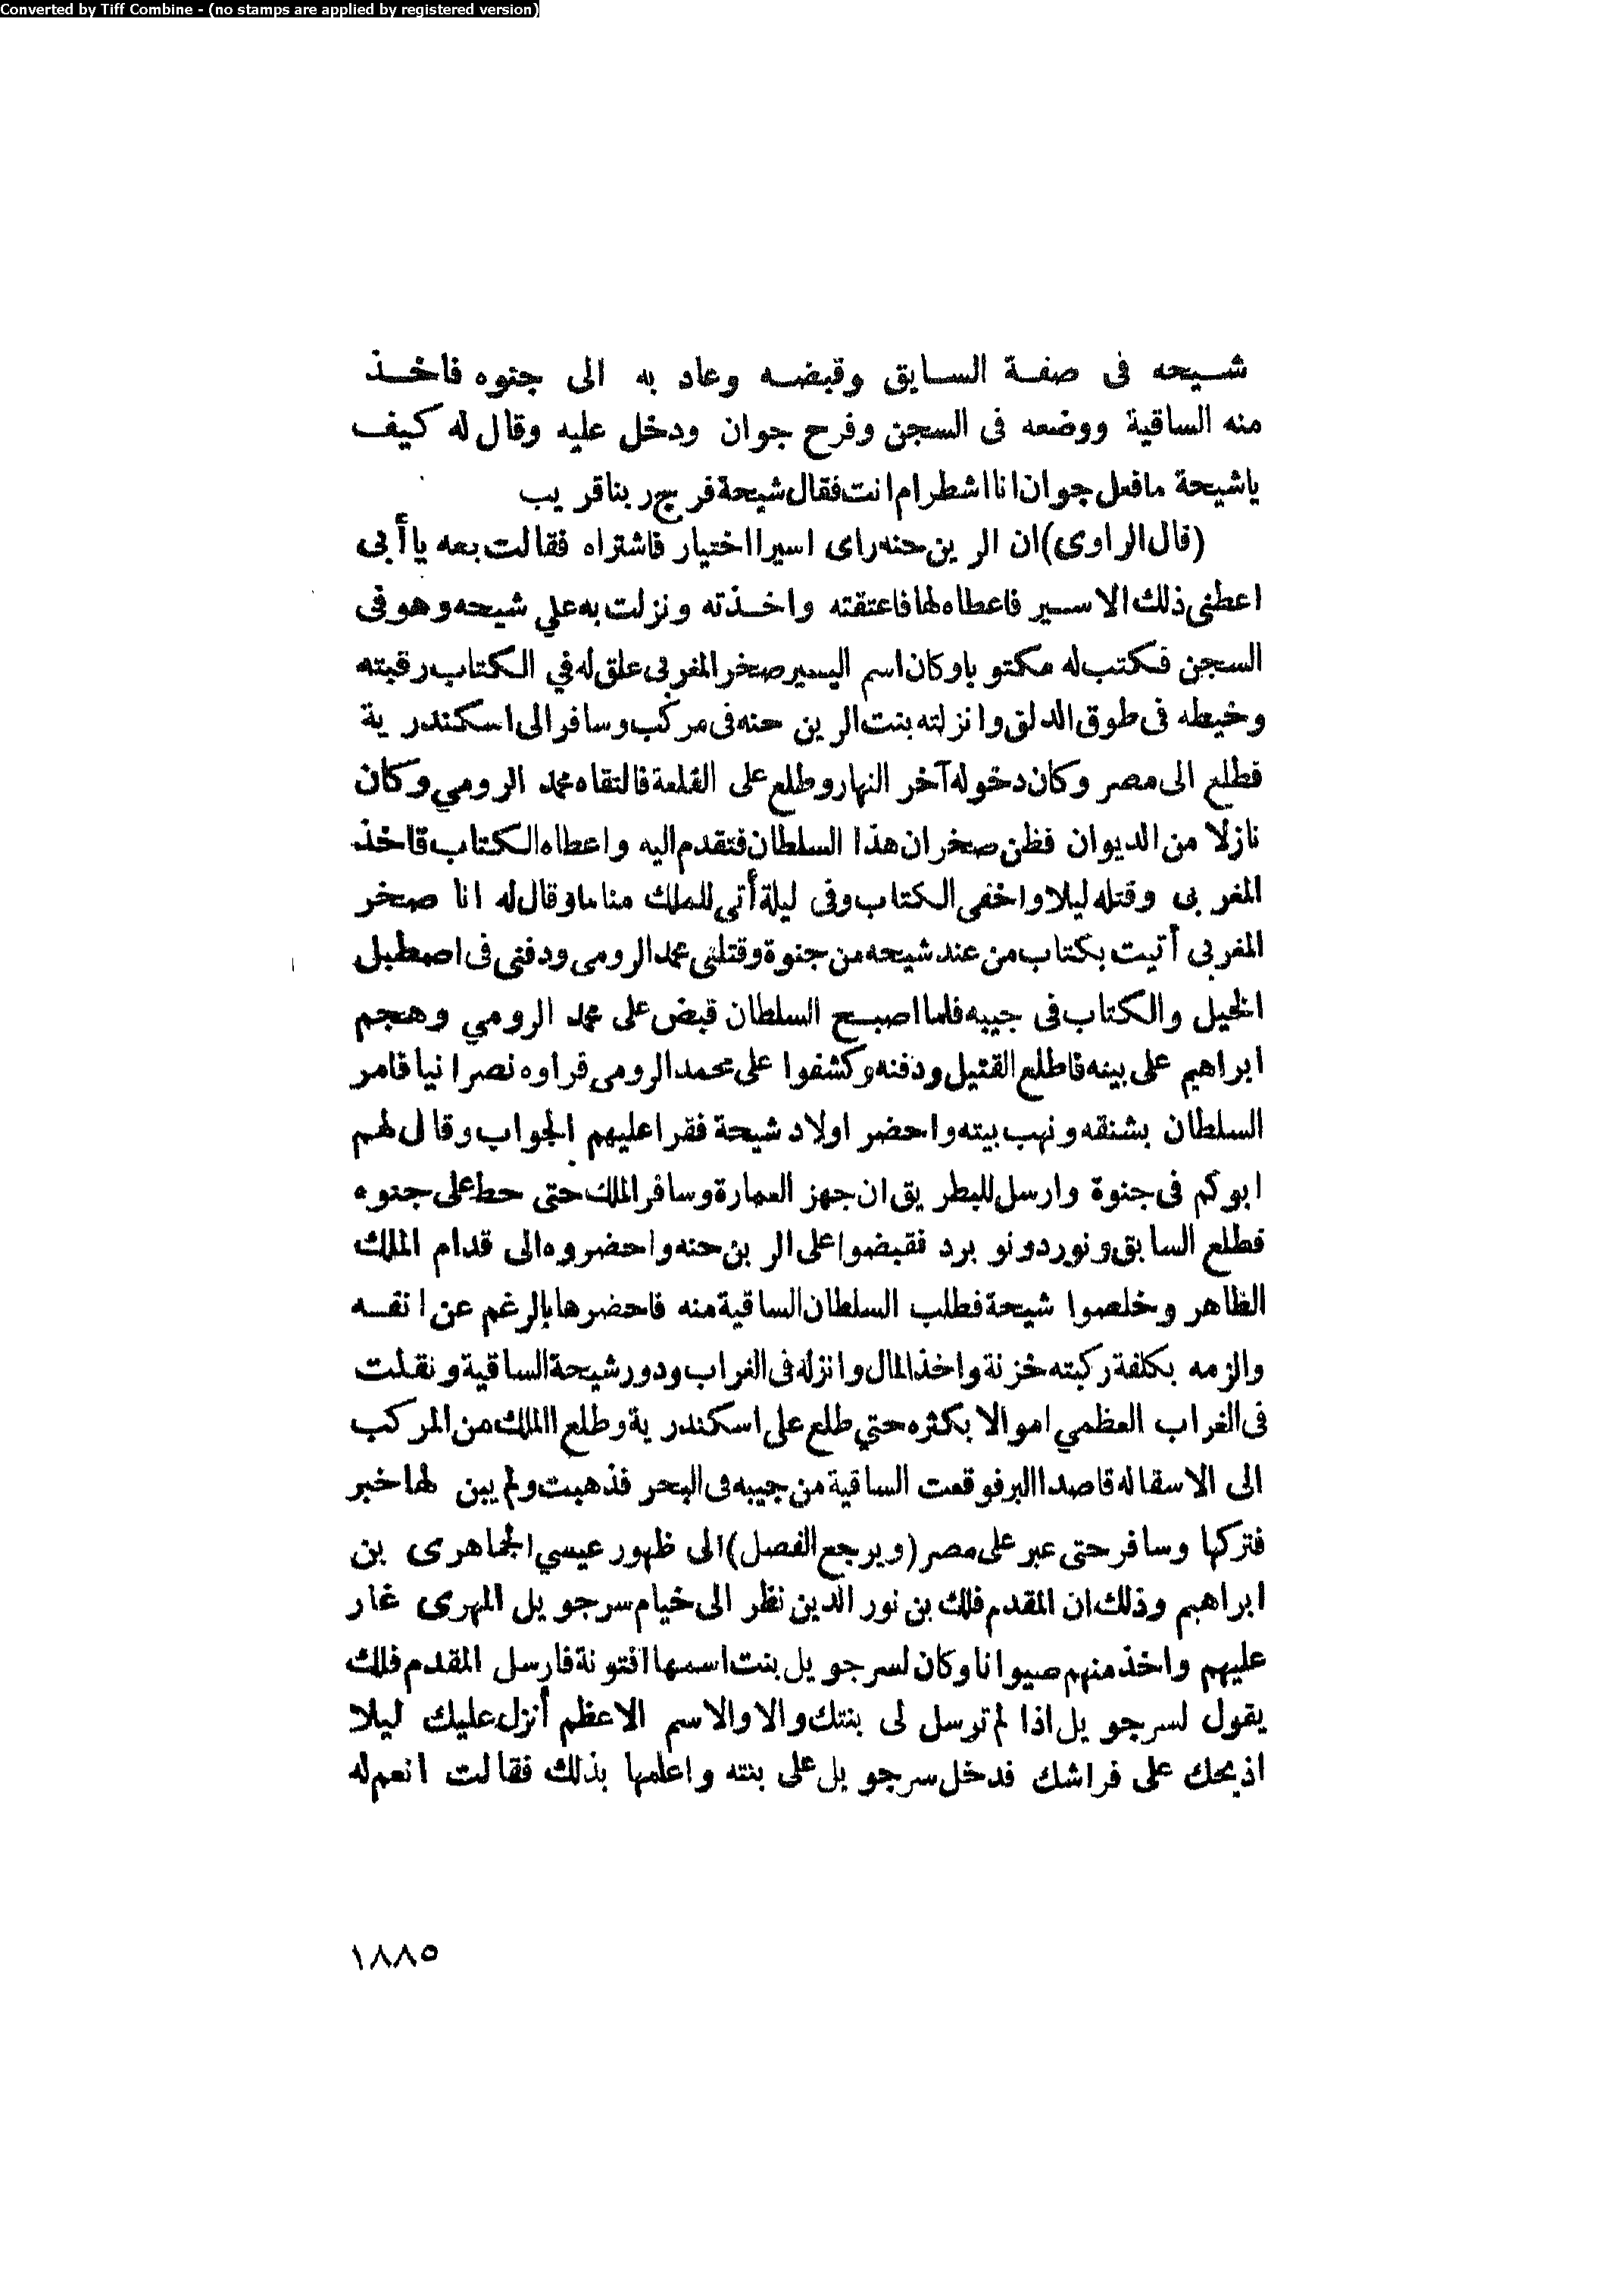 Converted by Tiff Combine - (no stamps are applied by registered version)
شيحه فى صفة السايق وقبضه وعاد به الى جنوه فاخذ
منه الساقية ووضعه فى السجن وفرح جوان ودخل عليه وقال له كيف
ياشيحة مافعل جوان انا اشطر ام انت فقال شيحة فرج ربنا قريب
(قال الراوى) ان الرين حنه راى اسيرا اختيار فاشتراه فقالت بعه يا أبى
اعطنى ذلك الاسير فاعطاه لها فاعتقته واخذته ونزلت به علي شيحه وهو فى
السجن فكتب له مكتوبا وكان اسم اليسير صخر المغربى علق له في الكتاب رقبته
وخيطه فى طوق الدلق وانزلته بنت الرين حنه فى مركب وسافر الى اسكندرية
فطلع الى مصر وكان دخوله آخر النهار وطلع على القلعة فالتقاه محمد الرومي وكان
نازلا من الديوان فظن صخر ان هذا السلطان فتقدم اليه واعطاه الكتاب فاخذ
المغربى وقتله ليلا واخفى الكتاب وفى ليلة أتى للملك مناما وقال له انا صخر
المغربى أتيت بكتاب من عند شيحه من جنوة وقتلنى محمد الرومى ودفنى فى اصطبل
الخيل والكتاب فى جيبه فلما اصبح السلطان قبض على محمد الرومي وهجم
ابراهيم على بيته فاطلع القتيل ودفنه وكشفوا على محمد الرومى فراوه نصرانيا فامر
السلطان بشنقه ونهب بيته واحضر اولاد شيحة فقرا عليهم الجواب وقال لهم
ابوكم فى جنوة وارسل للبطريق ان جهز العمارة وسافر الملك حتى حط على جنوه
فطلع السابق ونورد ونوبرد فقبضوا على الربن حنه واحضروه الى قدام الملك
الظاهر وخلصوا شيحة فطلب السلطان الساقية منه فاحضرها بالرغم عن انفسه
والزمه بكلفة ركبته خزنة واخذ المال وانزله فى الغراب ودور شيحة الساقية ونقلت
فى الغراب العظمي اموالا بكثره حتي طلع على اسكندرية وطلع الملك من المركب
الى الاسقاله قاصدا البر فوقعت الساقية من جيبه فى البحر فذهبت ولم يبن لها خبر
فتركها وسافر حتى عبر على مصر (ويرجع الفصل) الى ظهور عيسي الجماهرى بن
ابراهيم وذلك ان المقدم فلك بن نور الدين نظر الى خيام سرجويل المهرى غار
عليهم واخذ منهم صيوانا وكان لسرجويل بنت اسمها افتونة فارسل المقدم فلك
يقول لسرجويل اذا لم ترسل لى بنتك والا والاسم الاعظم أنزل عليك ليلا
اذبحك على فراشك فدخل سرجويل على بنته واعلمها بذلك فقالت انعم له
١٨٨٥